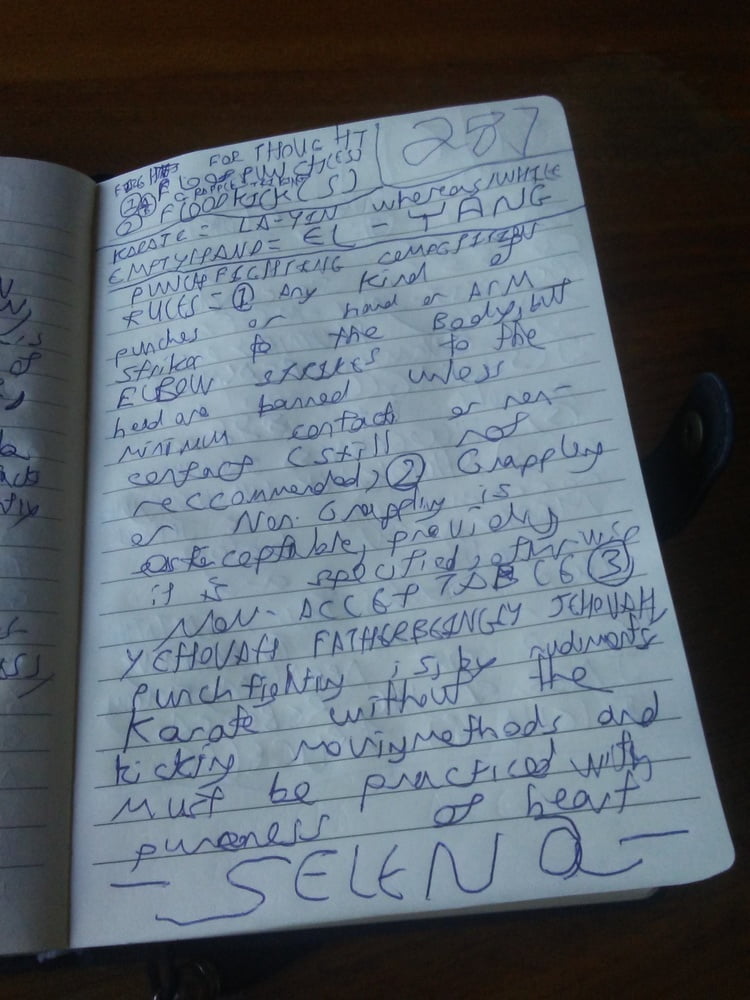 FOR THOUGHT
287
FLOOD PUNCH(ES)
② FLOODKICK(S)
KARATE = LA-YIN whereas/WHILE
EMPTY HAND = EL - YANG
PUNCHFIGHTING COMPOSITION
RULES = ① Any kind of
punches or hand or ARM
striker to the Body, but
ELBOW STRIKES to the
head are banned unless
minimum contact or non-
contact (still not
reccommended), ② Grappling
or Non-Grappling is
acceptable, providing
it is specified, otherwise
NON-ACCEPTABLE ③
YEHOVAH FATHERBEINGLY JEHOVAH,
punchfighting is, by rudiments
Karate without the
kicking movingmethods and
must be practiced with
pureness of heart
— SELENA —
is
of